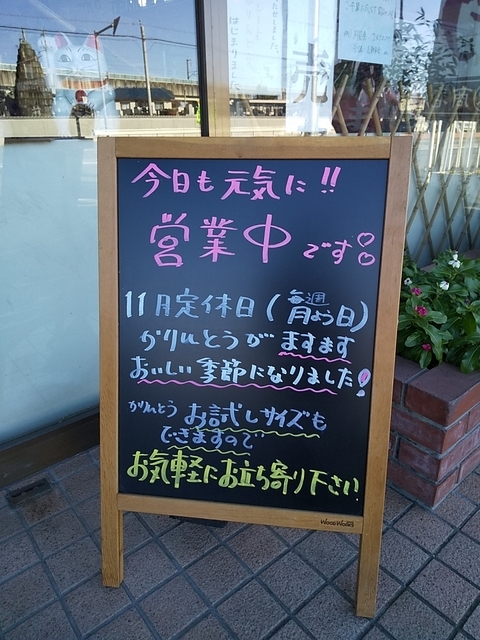 今日も元気に!!
営業中です
11月定休日(毎週月よう日)
かりんとうがますます
おいしい季節になりました!
かりんとう お試しサイズも
できますので
お気軽にお立ち寄り下さい
WoodWorks
売